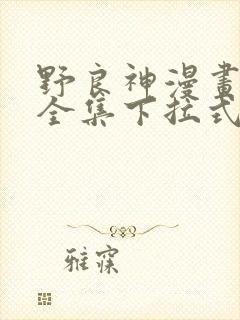 野良神漫畫
全集下拉式
雅寐